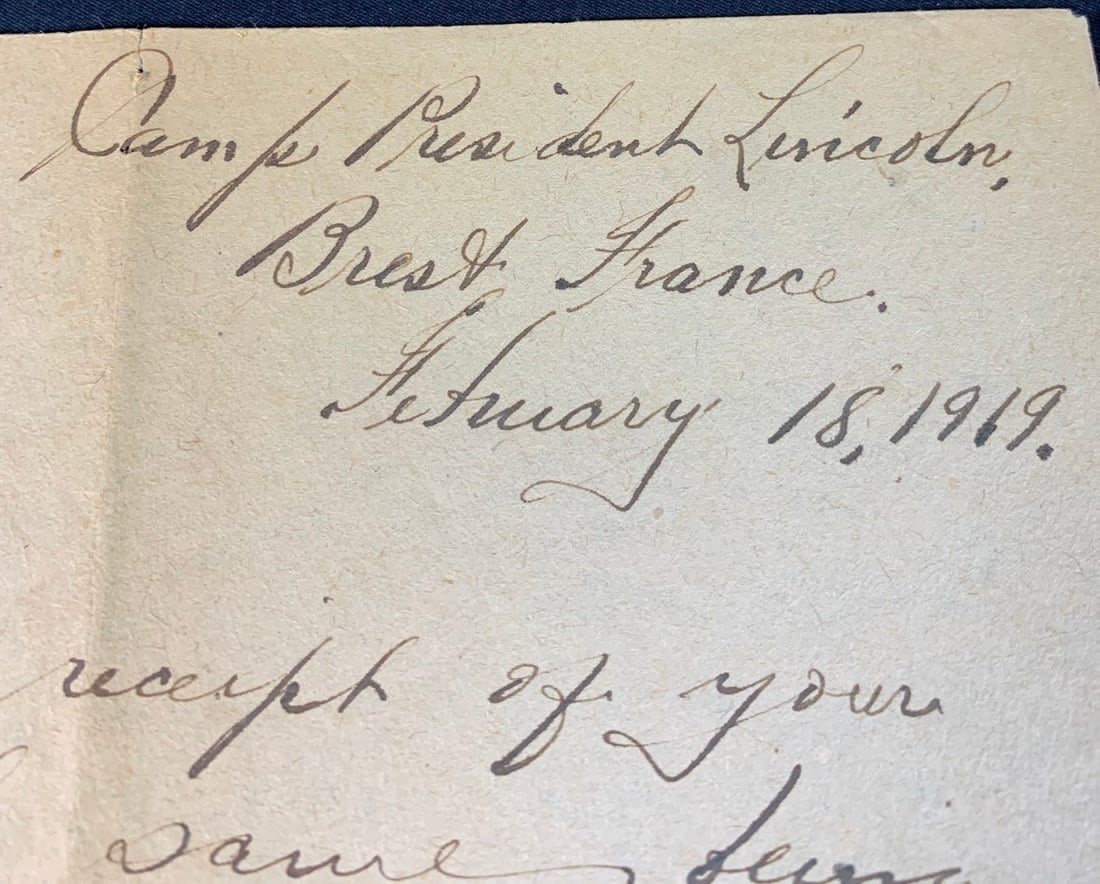 Camp President Lincoln,
Brest France.
February 18, 1919.
receipt of your
same